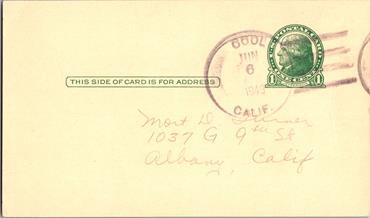 COOL
JUN
6
1943
CALIF.
U.S. POSTAL CARD
1 1
THIS SIDE OF CARD IS FOR ADDRESS
Mort D. Turner
1037 G 9th St
Albany, Calif